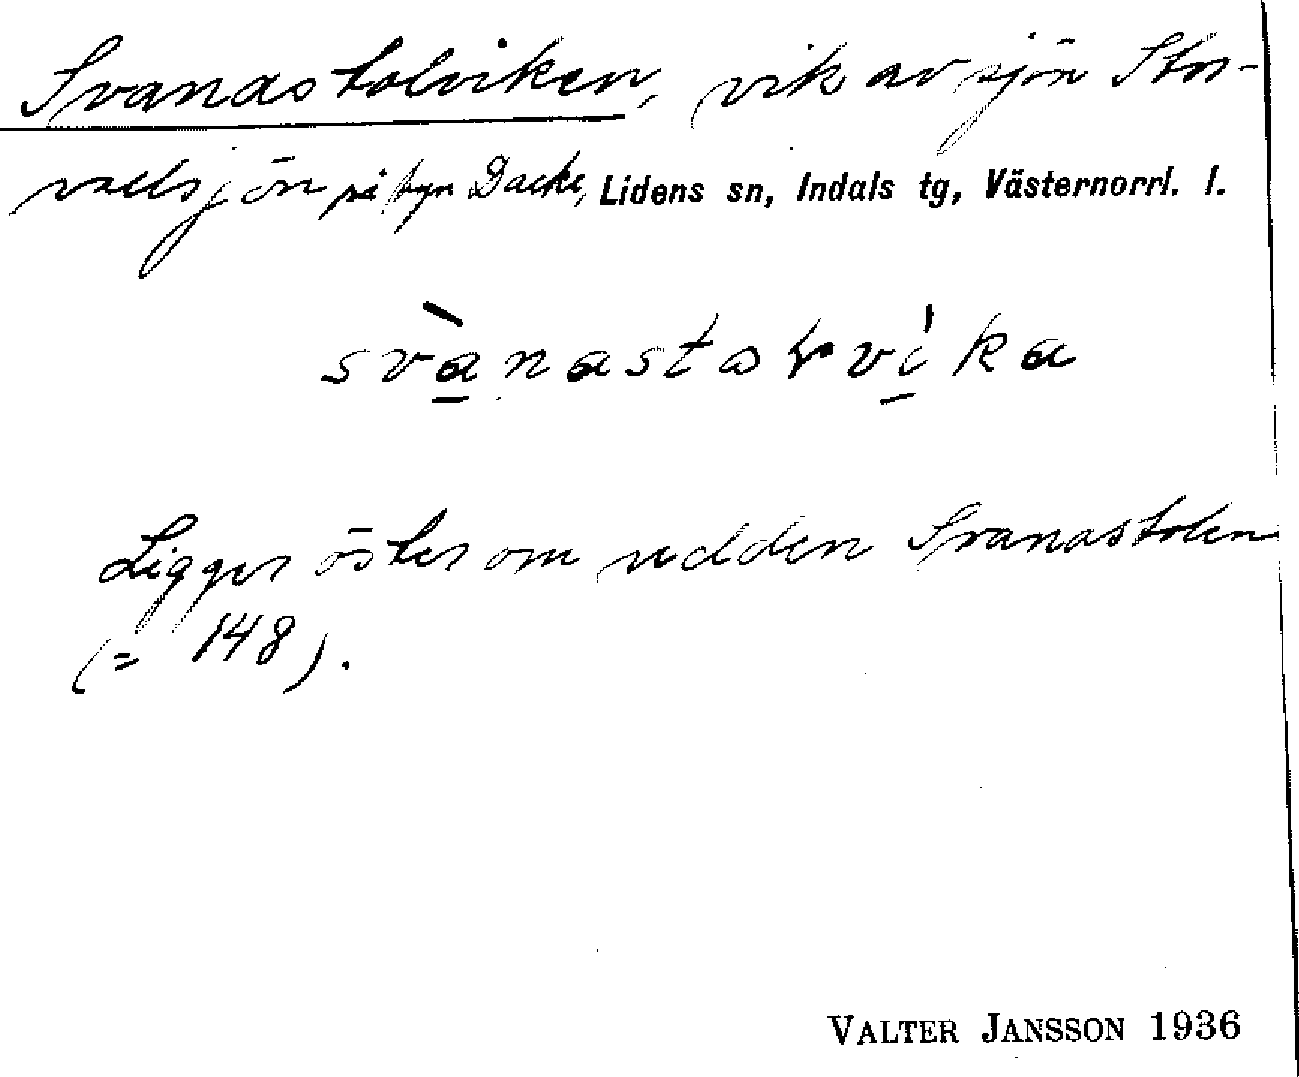 Svanastolviken, vik av sjön Stor-
vallsjön på byn Dacke, Lidens sn, Indals tg, Västernorrl. l.
svànastoɽvíka
Ligger öster om udden Svanastolen
(= 148).
VALTER JANSSON 1936